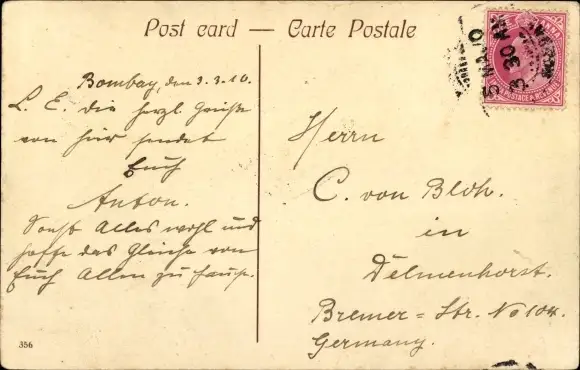 Post card — Carte Postale
Bombay, den 3.3.10.
L. E. die herzl Grüße
von hier sendet
Euch
Anton.
Sonst Alles wohl und
hoffe das Gleiche von
Euch Allen zu Hause.
Herrn
C. von Bloh.
in
Delmenhorst.
Bremer=Str. No 104.
Germany.
356
ANNA
POSTAGE & REVENUE
5 MA 10
3 30